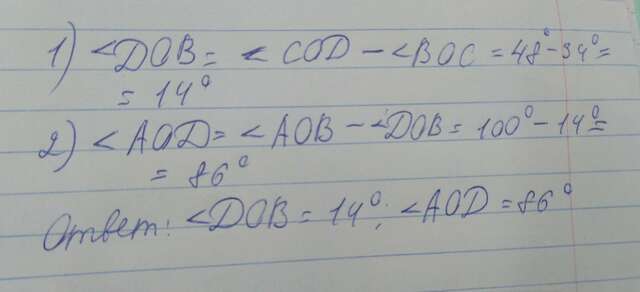 1) <DOB = < COD - <BOC = 48° - 34° =
= 14°
2) <AOD = <AOB - <DOB = 100° - 14° =
= 86°
Ответ: <DOB = 14°; <AOD = 86°